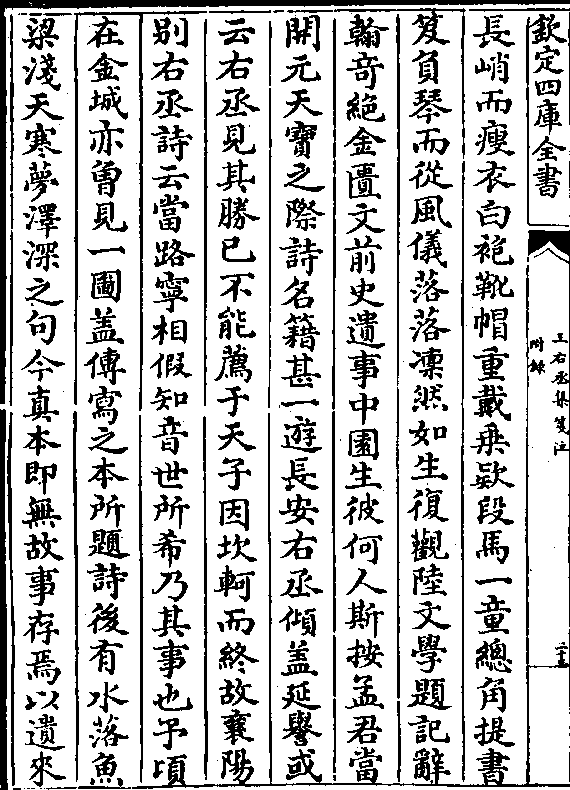 欽定四庫全書
王右丞集箋注
附錄
二十五
長峭而瘦衣白袍靴帽重戴乗欵段馬一童總角提書
笈負琴而從風儀落落凛然如生復觀陸文學題記辭
翰竒絶金匱文前史遺事中園生彼何人斯按孟君當
開元天寳之際詩名籍甚一遊長安右丞傾盖延譽或
云右丞見其勝已不能薦于天子因坎軻而終故襄陽
别右丞詩云當路寧相假知音世所希乃其事也予頃
在金城亦曾見一圖盖傳寫之本所題詩後有水落魚
梁淺天寒夢澤深之句今真本即無故事存焉以遺來